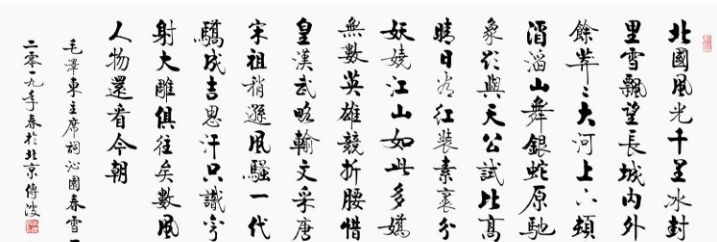 北國風光千里冰封
里雪飄望長城內外
餘莽〻大河上下頓
滔滔山舞銀蛇原馳
象欲與天公試比高
晴日看紅裝素裹分
妖嬈江山如此多嬌
無數英雄競折腰惜
皇漢武略輸文采唐
宋祖稍遜風騷一代
驕成吉思汗只識彎
射大雕俱往矣數風
人物還看今朝
毛澤東主席詞沁園春雪
二零一九年春於北京傅波